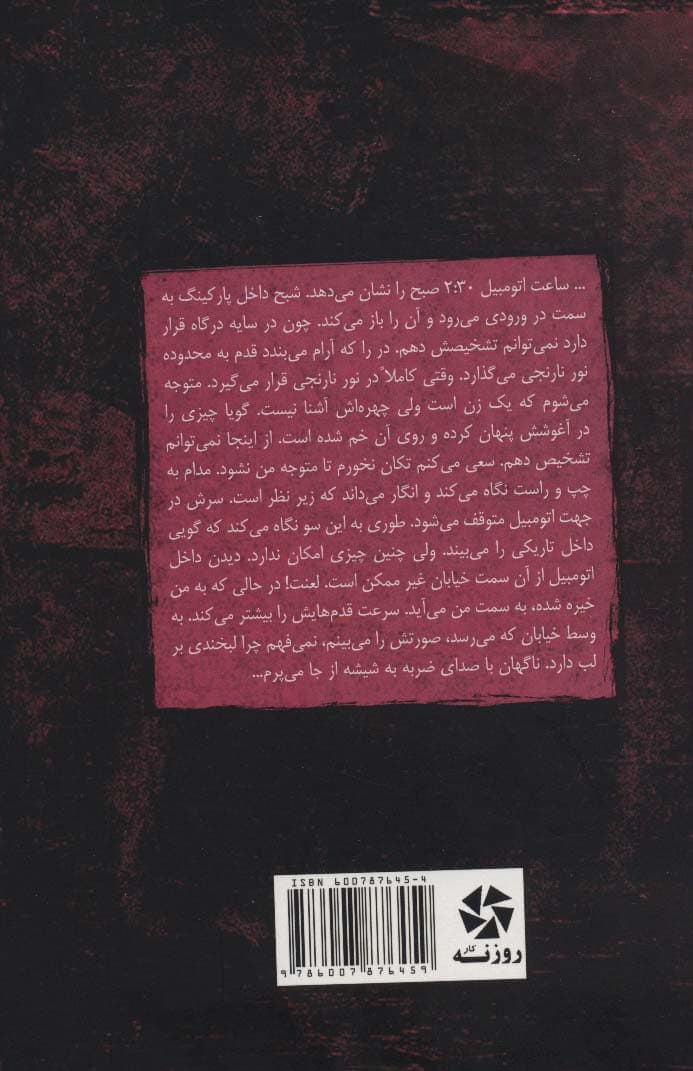 ... ساعت اتومبیل ۲:۳۰ صبح را نشان می‌دهد. شبح داخل پارکینگ به
سمت در ورودی می‌رود و آن را باز می‌کند. چون در سایه درگاه قرار
دارد نمی‌توانم تشخیصش دهم. در را که آرام می‌بندد قدم به محدوده
نور نارنجی می‌گذارد. وقتی کاملاً در نور نارنجی قرار می‌گیرد. متوجه
می‌شوم که یک زن است ولی چهره‌اش آشنا نیست. گویا چیزی را
در آغوشش پنهان کرده و روی آن خم شده است. از اینجا نمی‌توانم
تشخیص دهم. سعی می‌کنم تکان نخورم تا متوجه من نشود. مدام به
چپ و راست نگاه می‌کند و انگار می‌داند که زیر نظر است. سرش در
جهت اتومبیل متوقف می‌شود. طوری به این سو نگاه می‌کند که گویی
داخل تاریکی را می‌بیند. ولی چنین چیزی امکان ندارد. دیدن داخل
اتومبیل از آن سمت خیابان غیر ممکن است. لعنت! در حالی که به من
خیره شده، به سمت من می‌آید. سرعت قدم‌هایش را بیشتر می‌کند. به
وسط خیابان که می‌رسد، صورتش را می‌بینم، نمی‌فهم چرا لبخندی بر
لب دارد. ناگهان با صدای ضربه به شیشه از جا می‌پرم...
ISBN 600787645-4
9 786007 876459
کار
روزنه